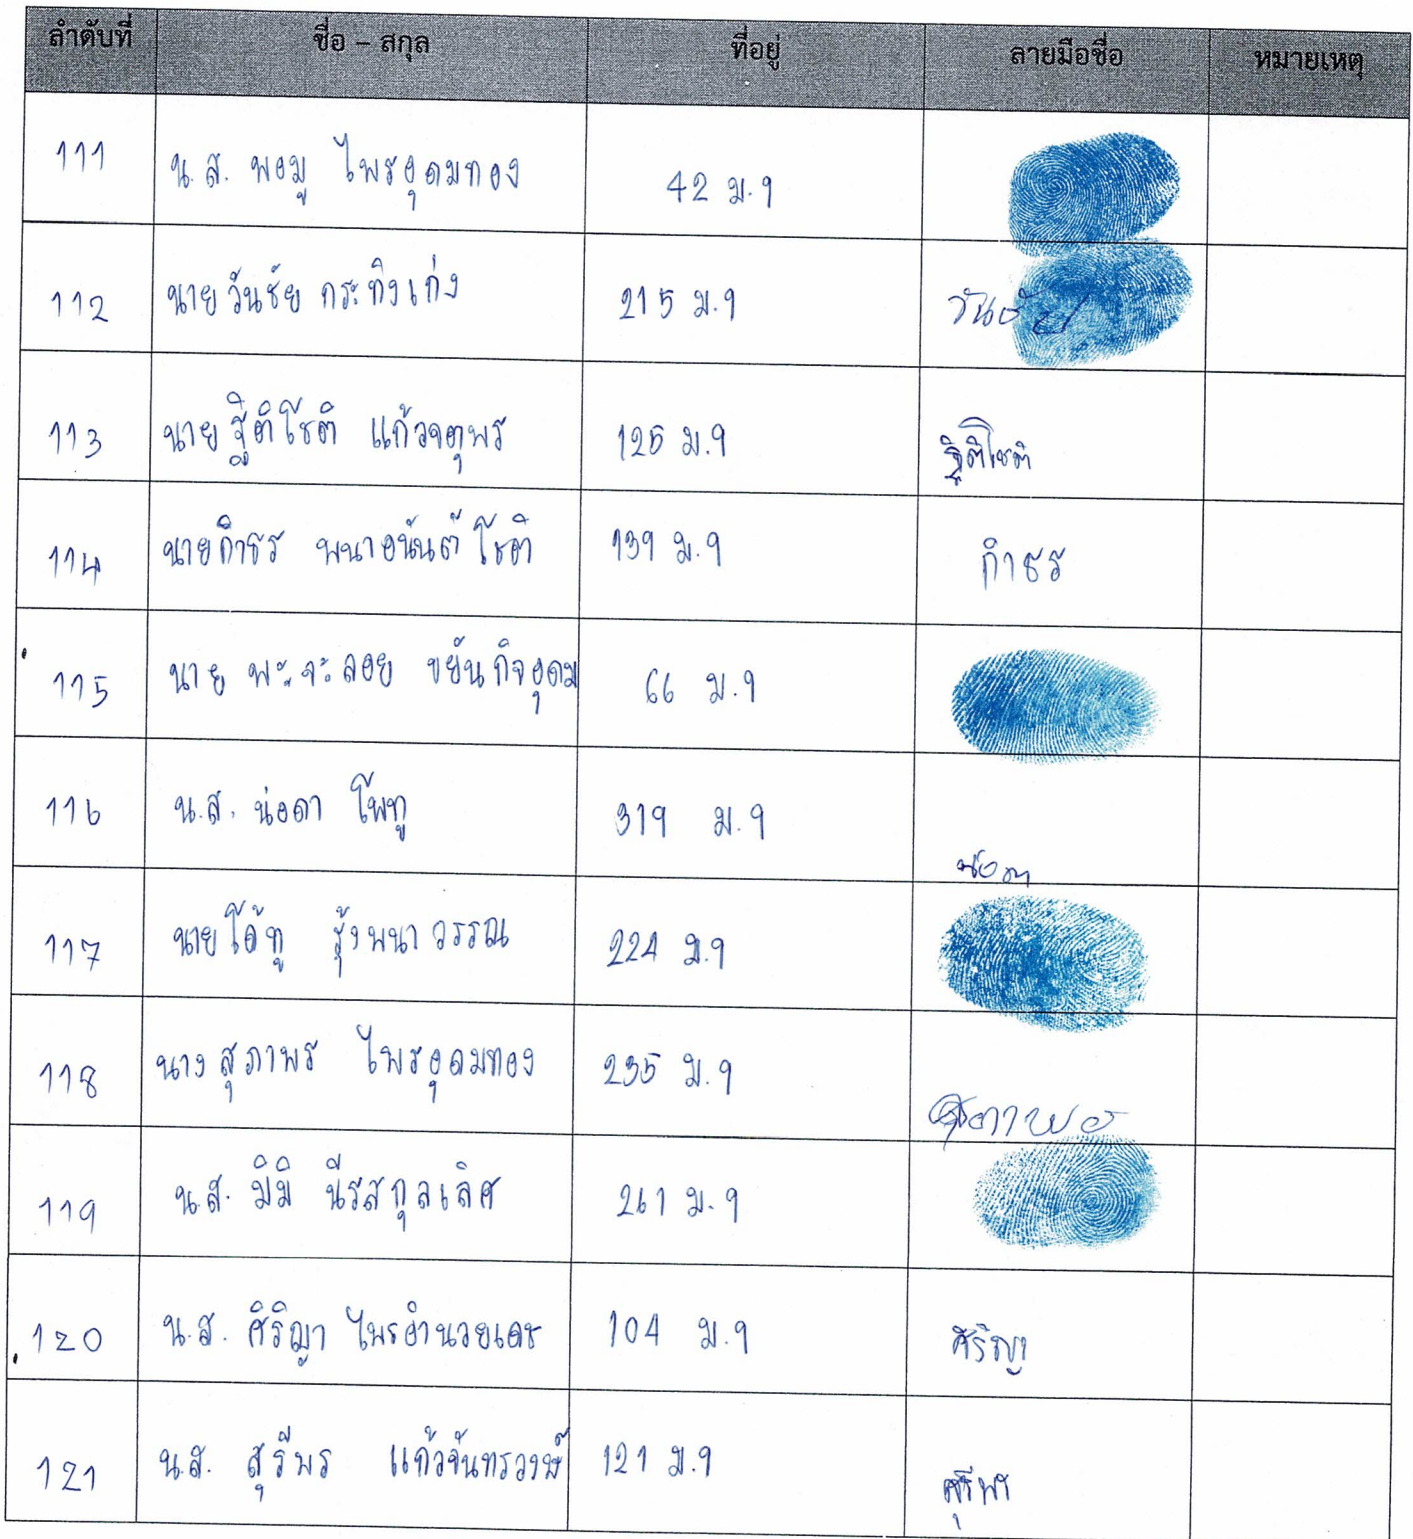 ลำดับที่ ชื่อ – สกุล ที่อยู่ ลายมือชื่อ หมายเหตุ
111 น.ส. พอมู ไพรอุดมทอง 42 ม.9
112 นายวันชัย กระทิงเก่ง 215 ม.9 วันชัย
113 นายฐิติโชติ แก้วจตุพร 125 ม.9 ฐิติโชติ
114 นายกำธร พนาอนันต์โชติ 139 ม.9 กำธร
115 นาย พะจะลอย ขยันกิจอุดม 66 ม.9
116 น.ส. น่อดา โพทู 319 ม.9 น่อดา
117 นายโอ้ทู รุ้งพนาวรรณ 224 ม.9
118 นางสุภาพร ไพรอุดมทอง 235 ม.9 สุภาพร
119 น.ส. มิมิ นีรสกุลเลิศ 261 ม.9
120 น.ส. ศิริญา ไพรอำนวยเดช 104 ม.9 ศิริญา
121 น.ส. สุรีพร แก้วจันทรวงษ์ 121 ม.9 สุรีพร